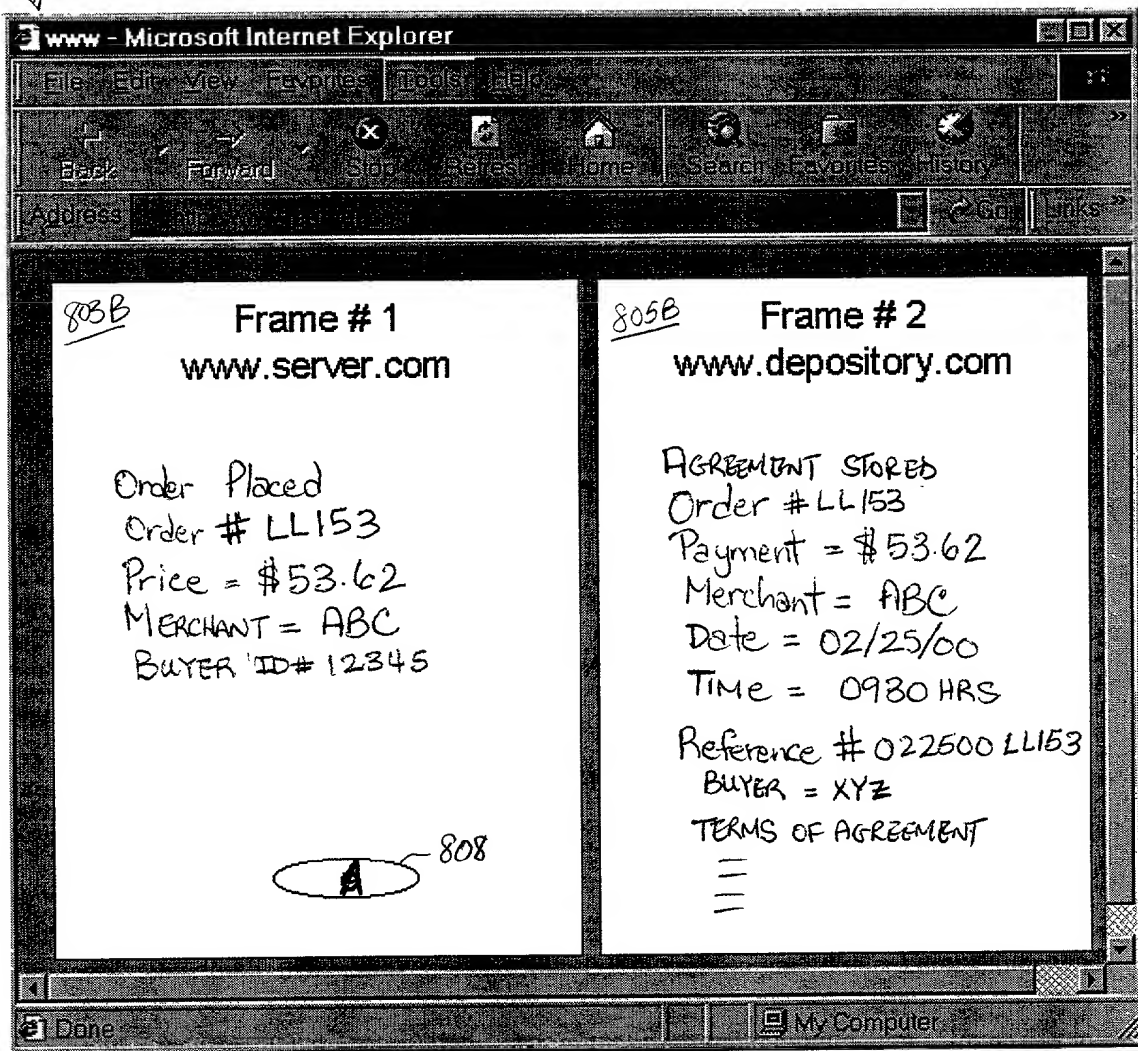 www - Microsoft Internet Explorer
File Edit View Favorites Tools Help
Back Forward Stop Refresh Home Search Favorites History
Address Go Links
803B Frame # 1
www.server.com
Order Placed
Order # LL153
Price = $53.62
MERCHANT = ABC
BUYER ID# 12345
A 808
805B Frame # 2
www.depository.com
AGREEMENT STORED
Order # LL153
Payment = $53.62
Merchant = ABC
Date = 02/25/00
TIME = 0930 HRS
Reference # 022500 LL153
BUYER = XYZ
TERMS OF AGREEMENT
Done My Computer